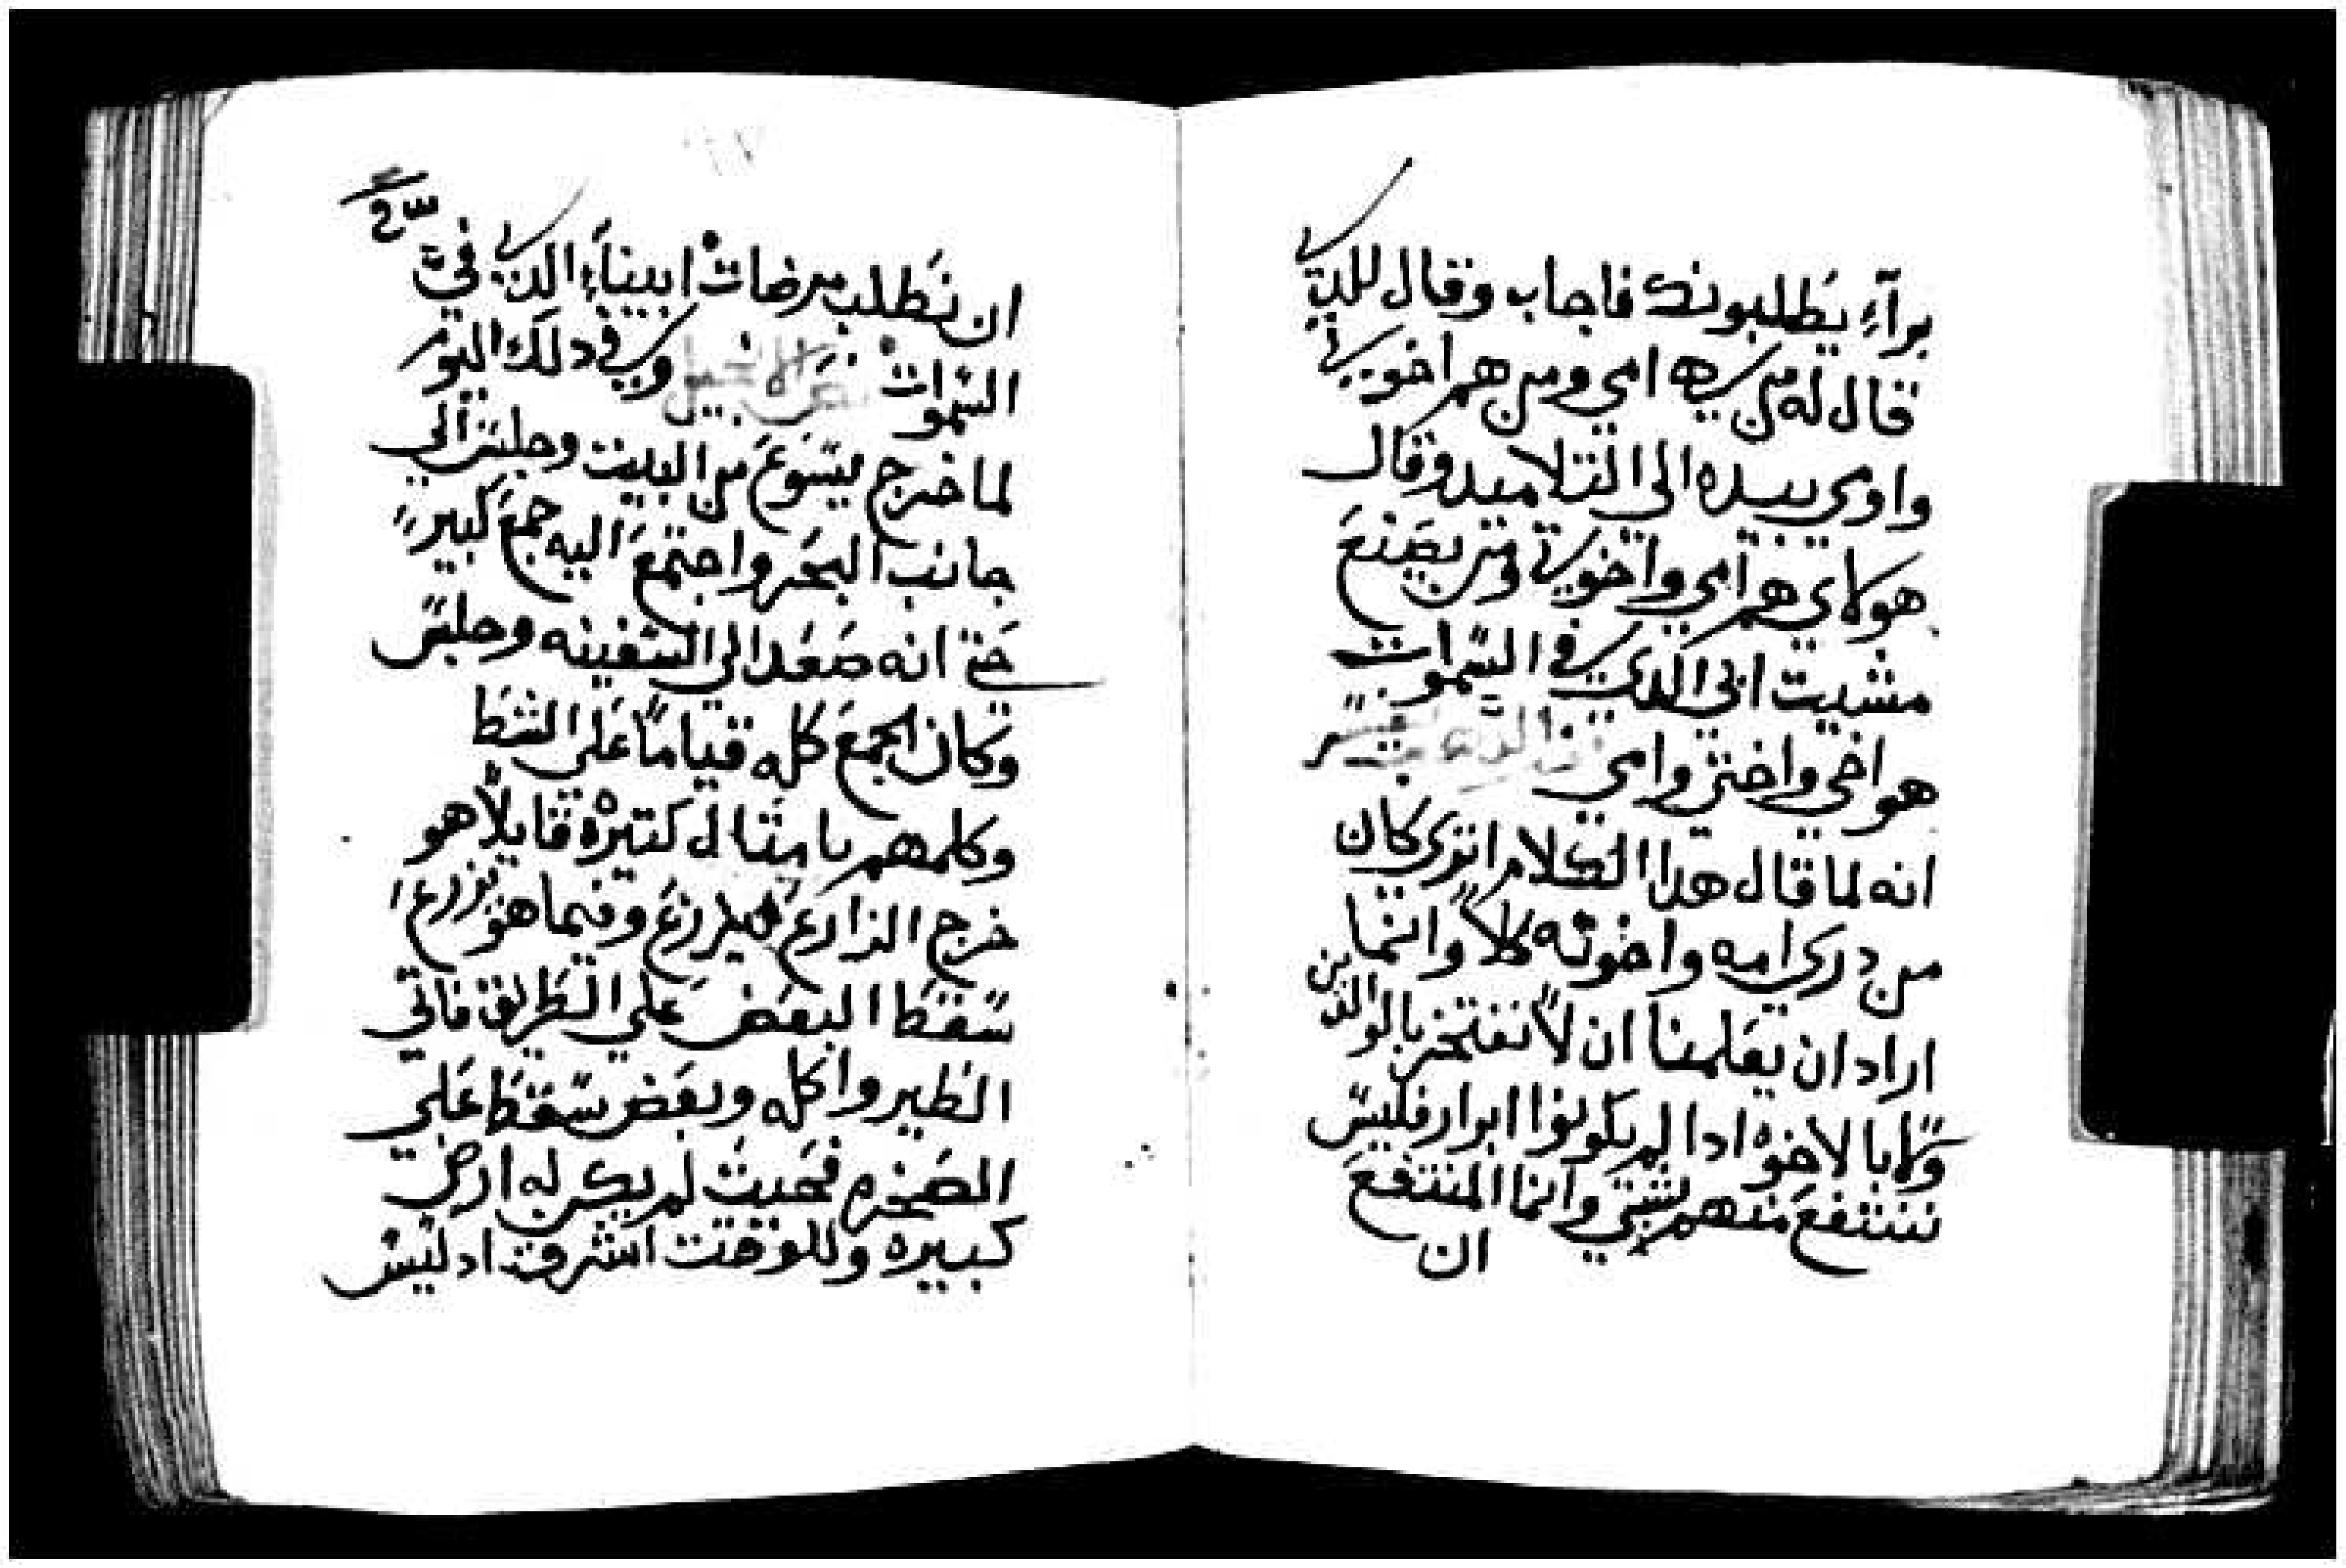 برآءِ يطلبونك فاجاب وقال للدي
قال له من هي امي ومن هم اخوتي
واومي بيده الي التلاميد وقال
هولاي هم امي واخوتي ومن يصنع
مشيت ابي الدي في السموات
هو اخي واختي وامي
انه لما قال هدا الكلام اتري كان
من دري امه واخوته كلاً وانما
اراد ان يعلمنا ان لا نفتخر بالوالدين
ولا بالاخوه ادا لم يكونوا ابرار فليس
ننتفع منهم بشي وانما المنتفع
ان
ان نطلب مرضات ابينا الدي في
السموات نص الانجيل وفي دلك اليوم
لما خرج يسوع من البيت وجلس الي
جانب البحر واجتمع اليه جمع كبير
حتي انه صعد الي السفينه وجلس
وكان الجمع كله قياماً علي الشط
وكلمهم بامتال كتيره قايلاً هو
خرج الزارع ليزرع وفيما هو يزرع
سقط البعض علي الطريق فاتي
الطير واكله وبعض سقط علي
الصخره فحيت لم يكن له ارض
كبيره وللوقت اشرق اد ليس